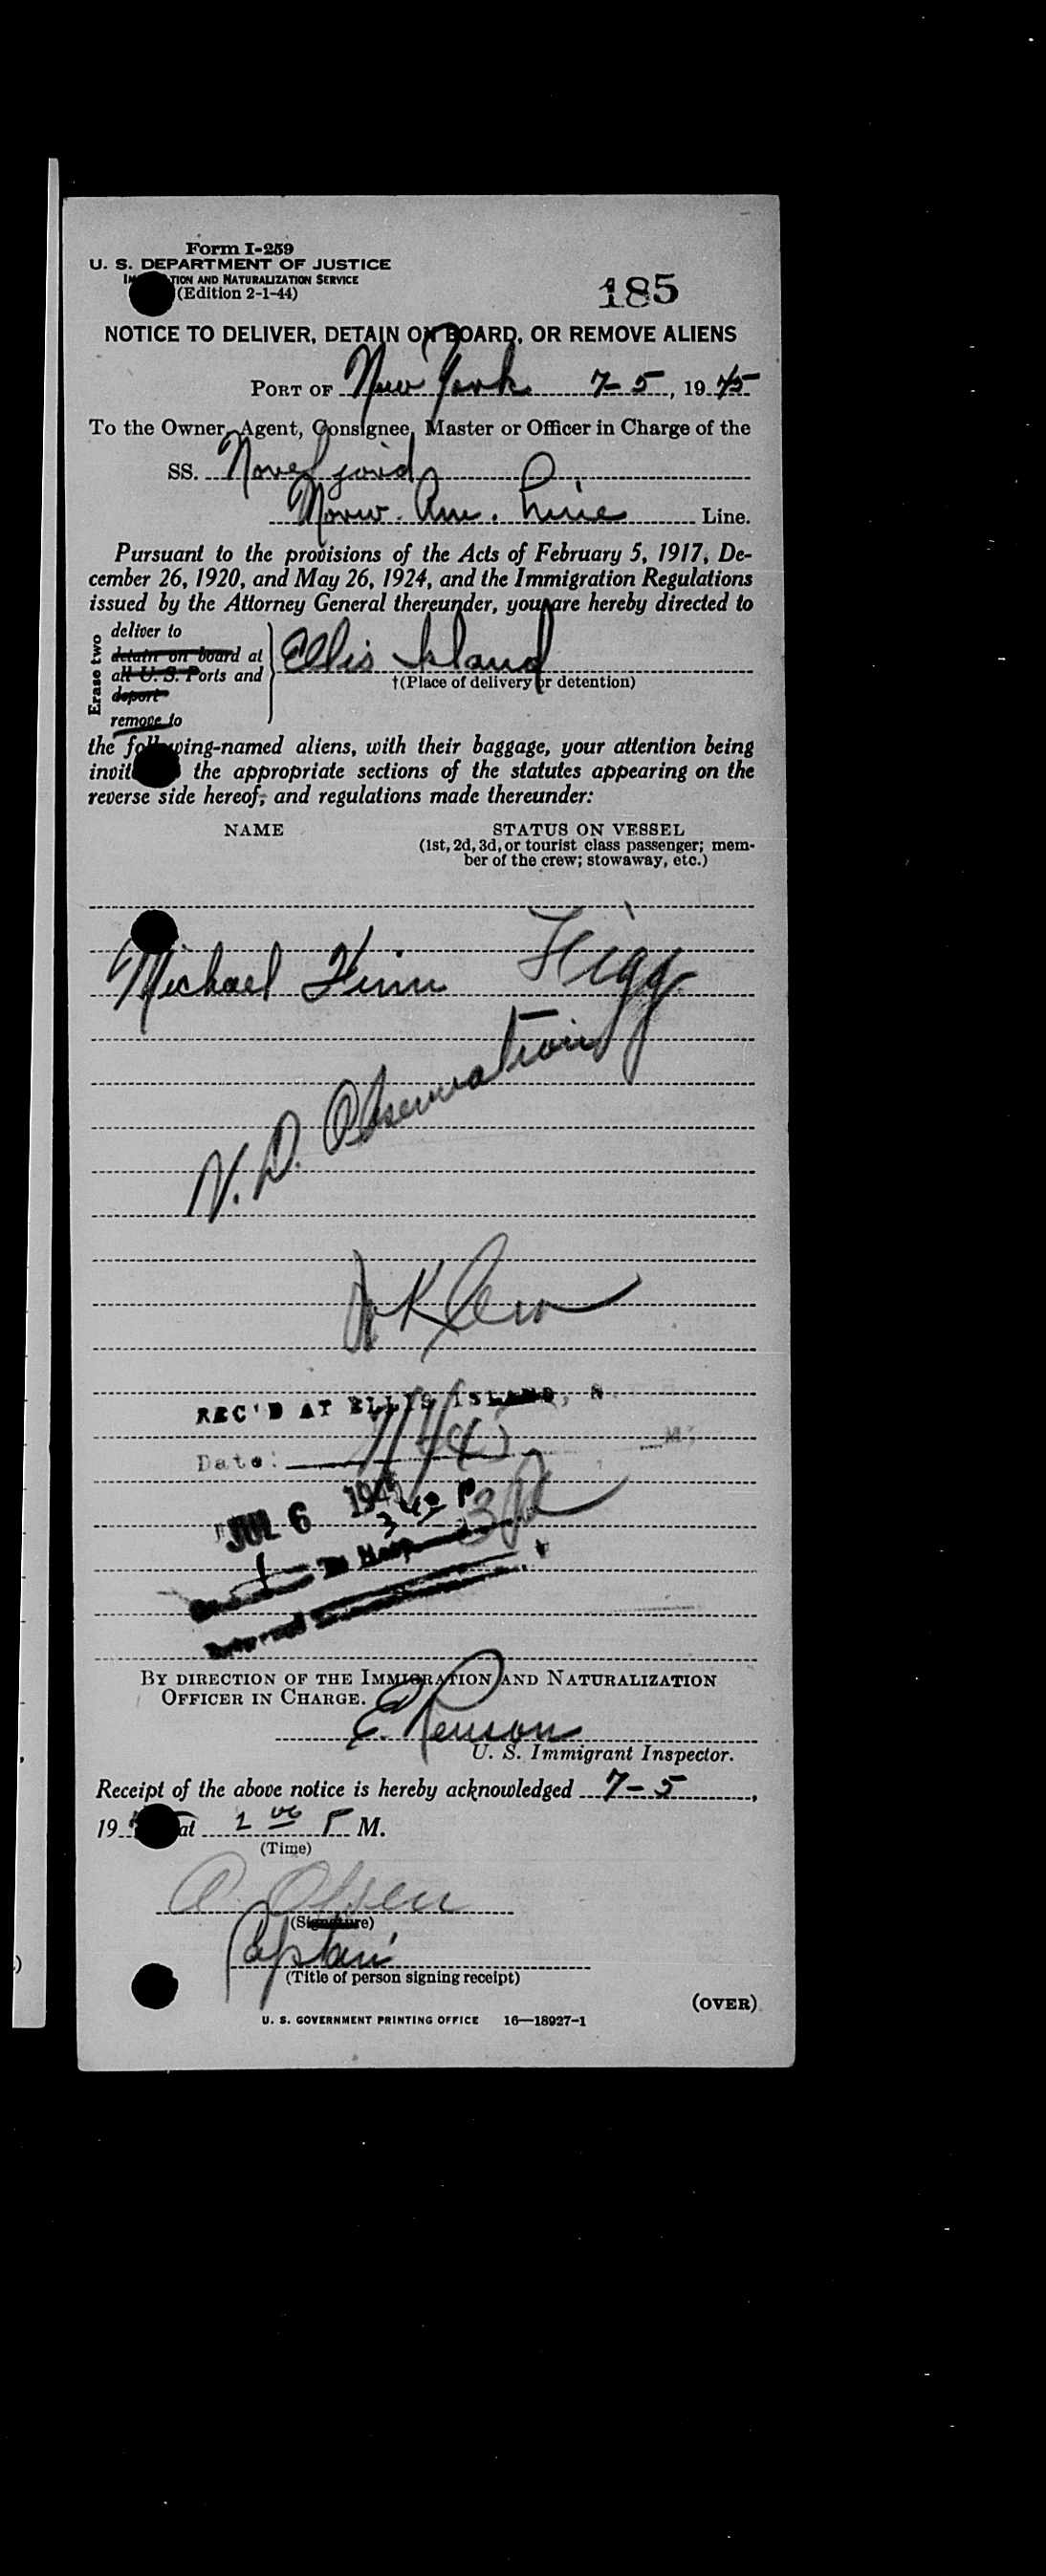 Form I-259
U. S. DEPARTMENT OF JUSTICE
TION AND NATURALIZATION SERVICE
(Edition 2-1-44)
185
NOTICE TO DELIVER, DETAIN ON BOARD, OR REMOVE ALIENS
PORT OF New York 7-5, 1945
To the Owner, Agent, Consignee, Master or Officer in Charge of the
SS.
Norw. Am. Line Line.
Pursuant to the provisions of the Acts of February 5, 1917, De-
cember 26, 1920, and May 26, 1924, and the Immigration Regulations
issued by the Attorney General thereunder, you are hereby directed to
Erase two
deliver to
detain on board at
all U. S. Ports and
deport
remove to
Ellis Island
†(Place of delivery or detention)
the following-named aliens, with their baggage, your attention being
invit the appropriate sections of the statutes appearing on the
reverse side hereof, and regulations made thereunder:
NAME STATUS ON VESSEL
(1st, 2d, 3d, or tourist class passenger; mem-
ber of the crew; stowaway, etc.)
Michael Finn
V. D. Observation
Klein
REC'D AT ELLIS ISLAND, N.
Date: M;
JUL 6 194
3 40 P
To Hosp
By DIRECTION OF THE IMMIGRATION AND NATURALIZATION
OFFICER IN CHARGE.
U. S. Immigrant Inspector.
Receipt of the above notice is hereby acknowledged 7-5,
19 at 2 00 P M.
(Time)
A. Olsen
(Signature)
Captain
(Title of person signing receipt)
(OVER)
U. S. GOVERNMENT PRINTING OFFICE 16—18927-1